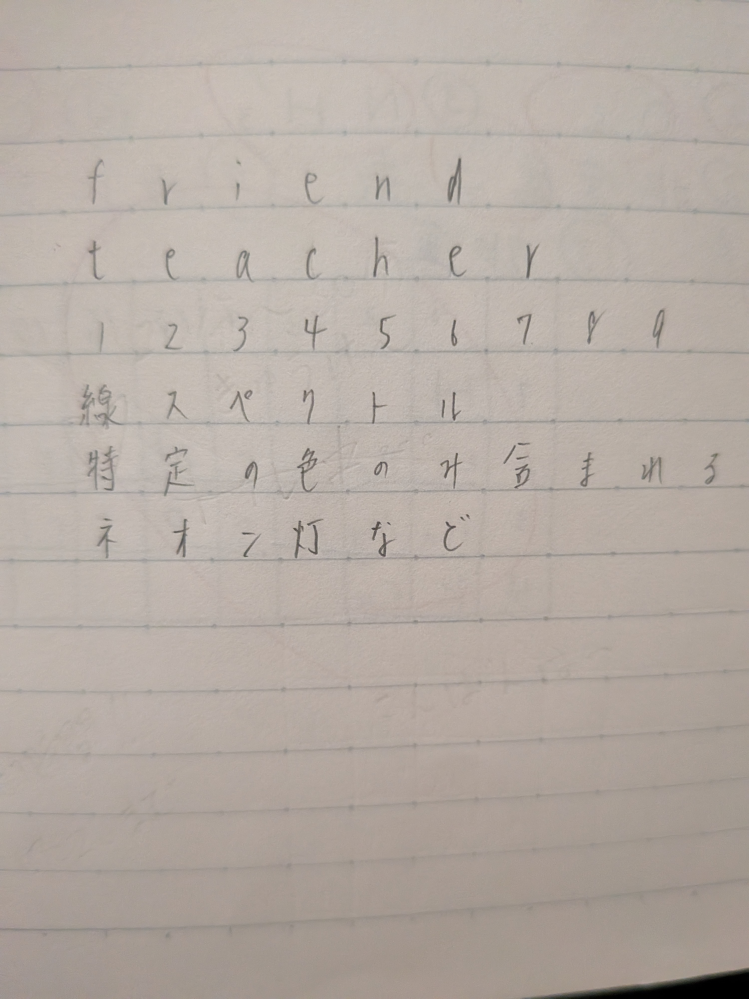 friend
teacher
1 2 3 4 5 6 7 8 9
線スペクトル
特定の色のみ含まれる
ネオン灯など